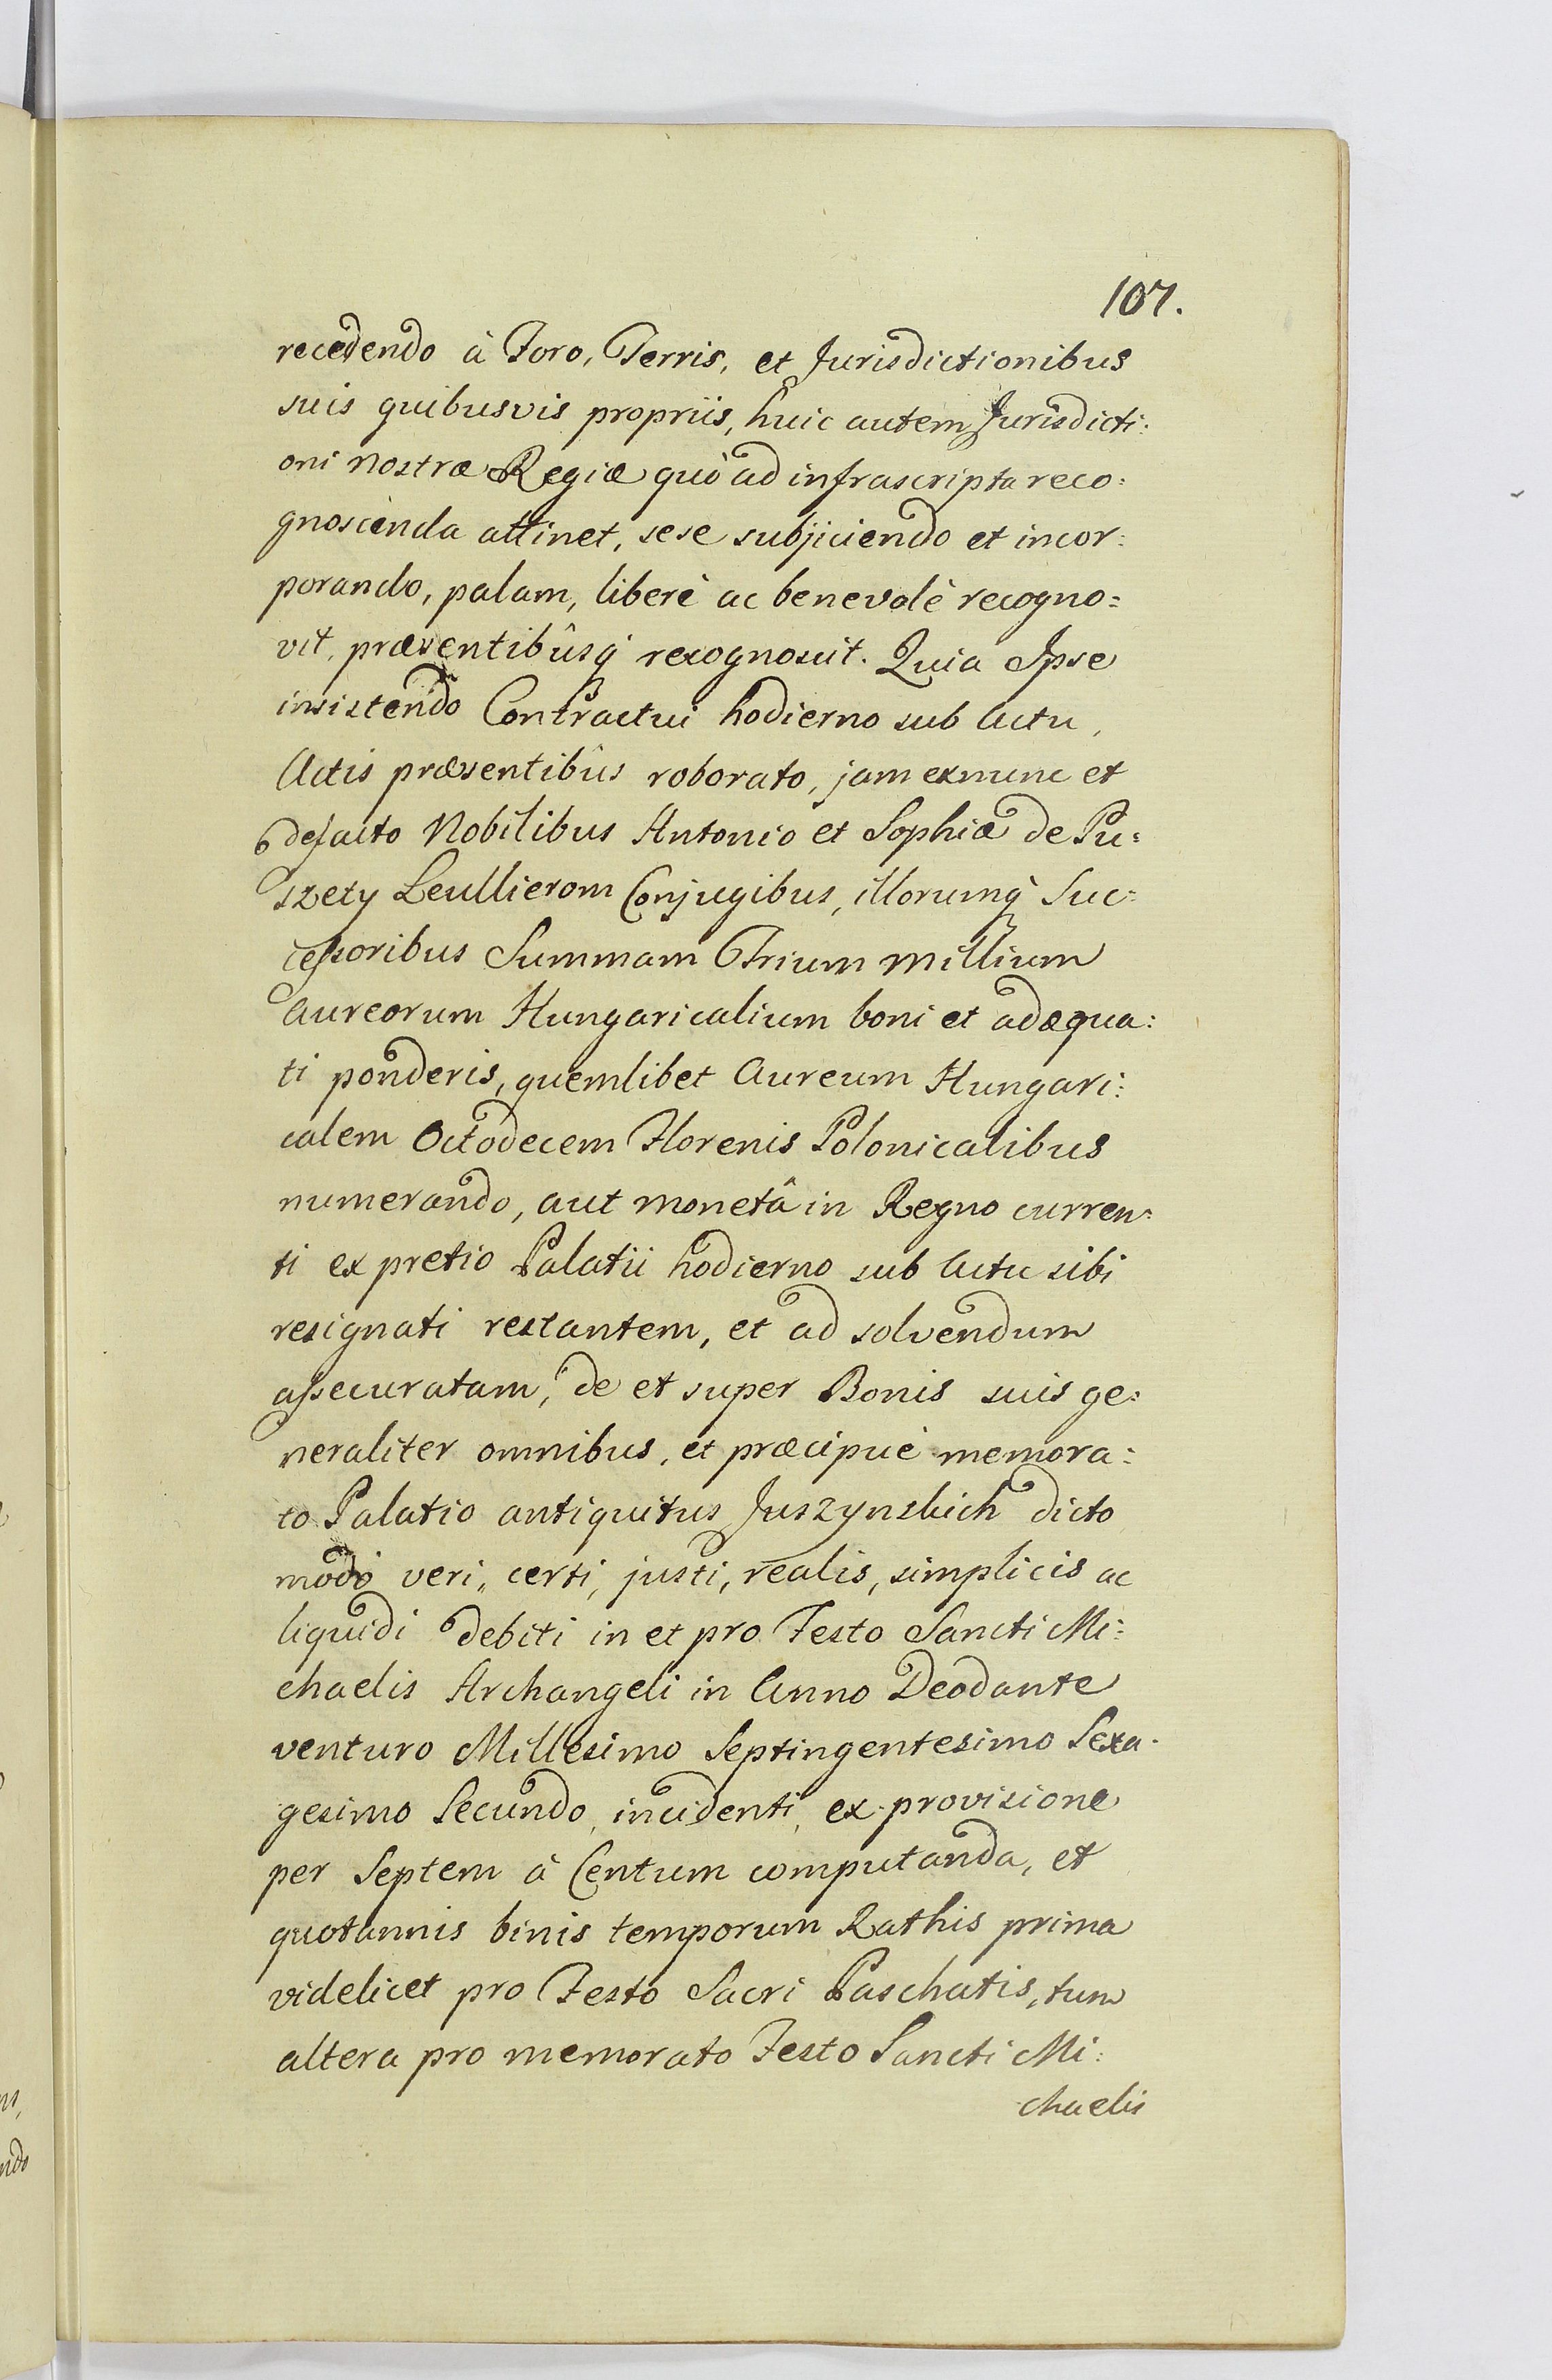 107.
recedendo à Foro, Terris, et Jurisdictionibus
suis quibusvis propriis, huic autem Jurisdicti:
oni Nostræ Regiæ quò ad infrascripta reco:
gnoscenda attinet, sese subjiciendo et incor:
porando, palam, liberè ac benevolè recogno:
vit, præsentibûsq̀ recognoscit. Quia Ipse
insistendo Contractui hodierno sub Actu,
Actis præsentibûs roborato, jam exnunc et
defacto Nobilibus Antonio et Sophiæ de Pu:
szety Leullierom Conjugibus, illorumq̀ Suc:
cessoribus Summam Trium Millium
Aureorum Hungaricalium boni et adæqua:
ti ponderis, quemlibet Aureum Hungari:
calem Octodecem Florenis Polonicalibus
numerando, aut monetâ in Regno curren:
ti ex pretio Palatii hodierno sub Actu sibi
resignati restantem, et ad solvendum
assecuratam, de et super Bonis suis ge:
neraliter omnibus, et præcipuè memora:
to Palatio antiquitus Juszynskich dicto
modo veri, certi, justi, realis, simplicis ac
liquidi debiti in et pro Festo Sancti Mi:
chaelis Archangeli in Anno Deodante
venturo Millesimo Septingentesimo Sexa:
gesimo Secundo, incidenti, ex provisione
per Septem à Centum computanda, et
quotannis binis temporum Rathis prima
videlicet pro Festo Sacri Paschatis, tum
altera pro memorato Festo Sancti Mi:
chaelis